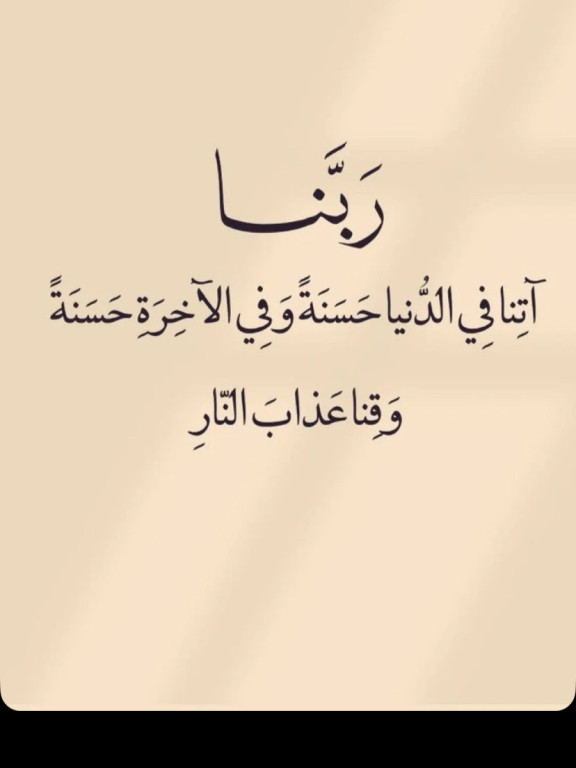 رَبَّنا
آتِنا فِي الدُّنيا حَسَنَةً وَفِي الآخِرَةِ حَسَنَةً
وَقِنا عَذابَ النّارِ